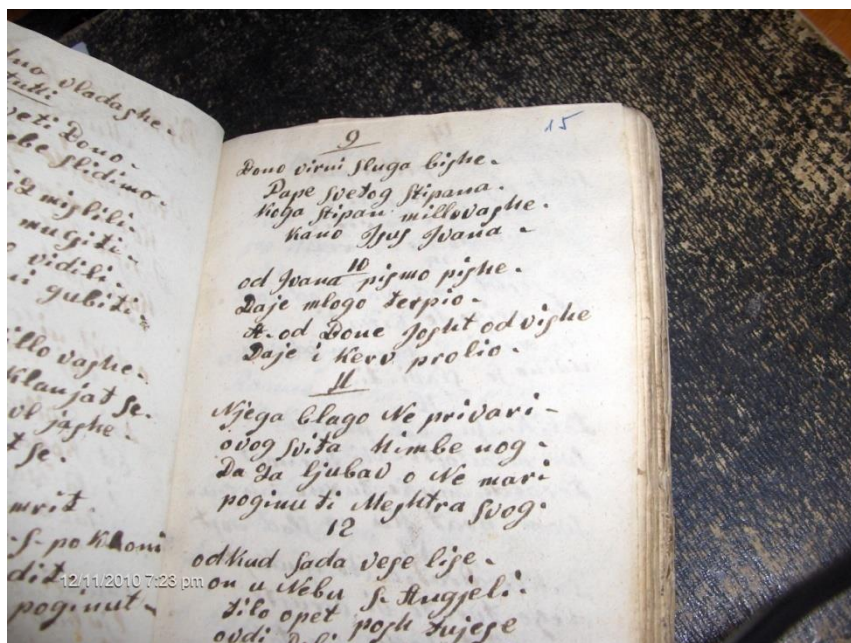 vladashe.
sveti Dono.
slidimo.
mislili.
muçiti.
vidili.
gubiti.
millo vashe.
klanjat se.
vl jashe.
t se.
mrit.
S. po kloni
dit
poginut.
15
9
Dono virni sluga bishe.
Pape svetog Stipana.
koga Stipan millovashe.
kano Isus Ivana.
10
od Ivana pismo pishe.
Daje mlogo terpio.
A. od Done Josht od vishe
Daje i kerv prolio.
11
Njega blago Ne privari-
ovog svita Himbe nog.
Da za ljubav o Ne mari
poginuti Meshtra svog.
12
odkud sada vese lise.
on u Nebu S. Angjeli.
tilo opet posh tujese
ovdi
12/11/2010 7:23 pm